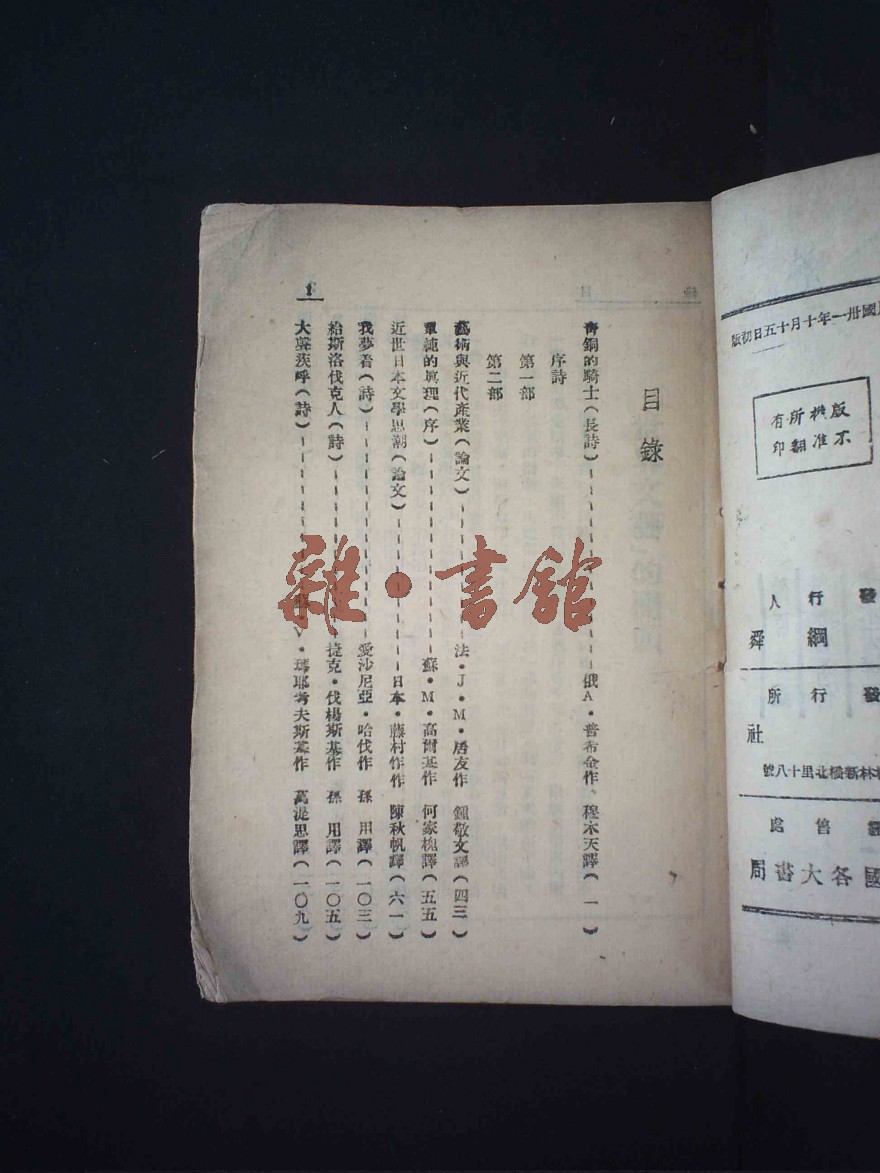 國卅一年十月十五日初版
版權所有
不准翻印
發行人
綱舜
發行所
社
林新橋北里十八號
經售處
國各大書局
目錄
青銅的騎士(長詩)俄A·普希金作、穆木天譯(一)
序詩
第一部
第二部
藝術與近代產業(論文)法·J·M·居友作 鍾敬文譯(四三)
單純的眞理(序)蘇·M·高爾基作 何家槐譯(五五)
近世日本文學思潮(論文)日本·藤村作作 陳秋帆譯(六一)
我夢着(詩)愛沙尼亞·哈伐作 孫用譯(一〇三)
給斯洛伐克人(詩)捷克·伐楊斯基作 孫用譯(一〇五)
大聲疾呼(詩)·V·瑪耶考夫斯基作 萬湜思譯(一〇九)
1
雜·書館